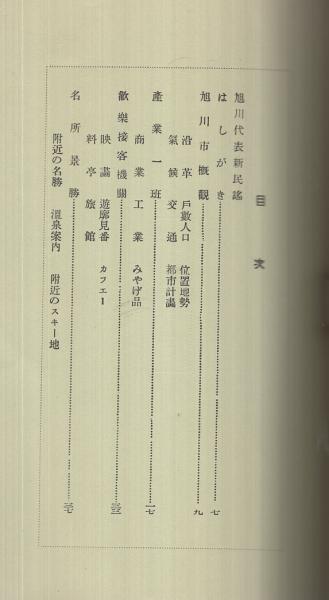 目次
旭川代表新民謠
はしがき……七
旭川市概觀……九
沿革 戶數人口 位置地勢
氣候 交通 都市計畫
產業一班……一七
商業 工業 みやげ品
歡樂接客機關……三三
映畵 遊廓見番 カフエー
料亭 旅館
名所景勝……三七
附近の名勝 溫泉案內 附近のスキー地